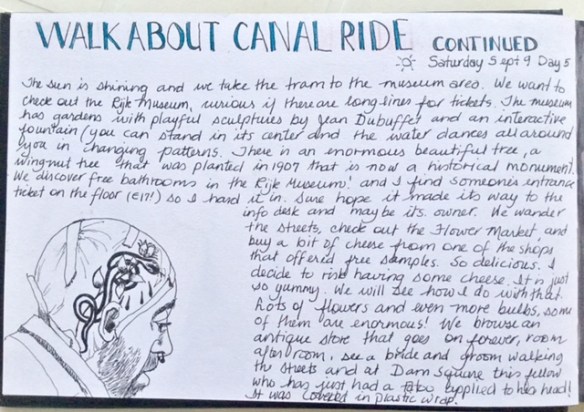 WALKABOUT CANAL RIDE CONTINUED
Saturday Sept 9 Day 5
The sun is shining and we take the tram to the museum area. We want to
check out the Rijk Museum, curious if there are long lines for tickets. The museum
has gardens with playful sculptures by Jean Dubuffet and an interactive
fountain (you can stand in its center and the water dances all around
you in changing patterns. There is an enormous beautiful tree, a
wingnut tree that was planted in 1907 that is now a historical monument.
We discover free bathrooms in the Rijk Museum! and I find someone's entrance
ticket on the floor (€17!) so I hand it in. Sure hope it made its way to the
info desk and maybe its owner. We wander
the streets, check out the Flower Market, and
buy a bit of cheese from one of the shops
that offered free samples. So delicious. I
decide to risk having some cheese. It is just
so yummy. We will see how I do with that.
Lots of flowers and even more bulbs, some
of them are enormous! We browse an
antique store that goes on forever, room
after room, see a bride and groom walking
the streets and at Dam Square this fellow
who has just had a tatoo applied to his head!
It was covered in plastic wrap.